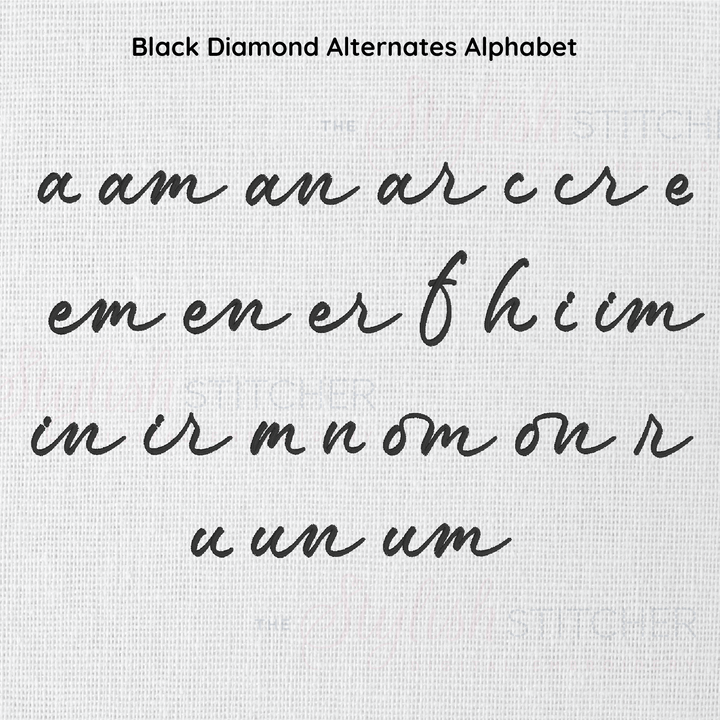 Black Diamond Alternates Alphabet
THE Stylish STITCH
a am an ar c cr e
em en er f h i im
Stylish STITCHER
in ir m n om on r
u un um
THE Stylish STITCHER